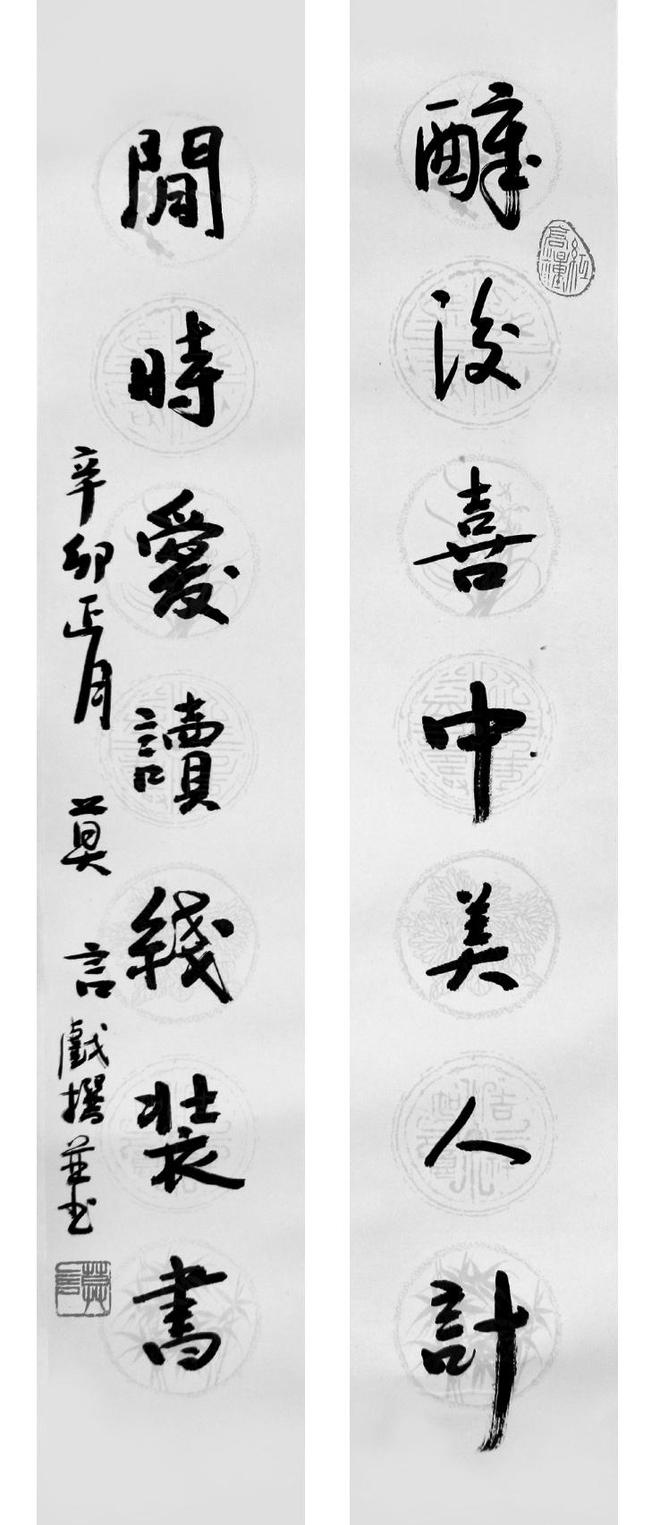 醉後喜中美人計
閒時愛讀綫裝書
辛卯正月 莫言戲撰並书
莫言